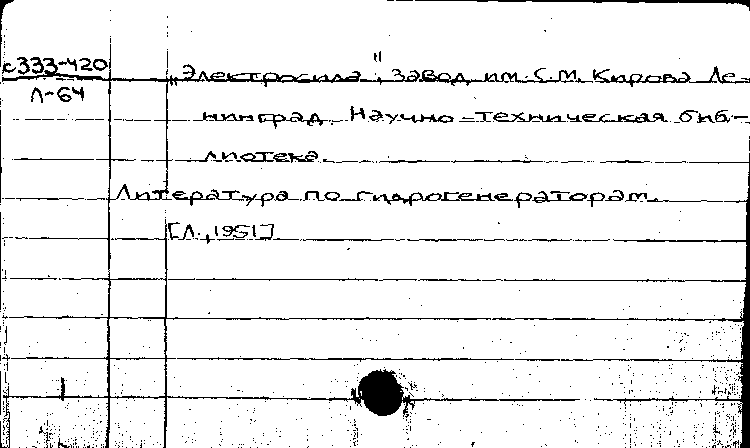 с333-420
Л-64
„Электросила", завод им. С.М. Кирова Ле-
нинград. Научно-техническая биб-
лиотека.
Литература по гидрогенераторам.
[Л., 1951]